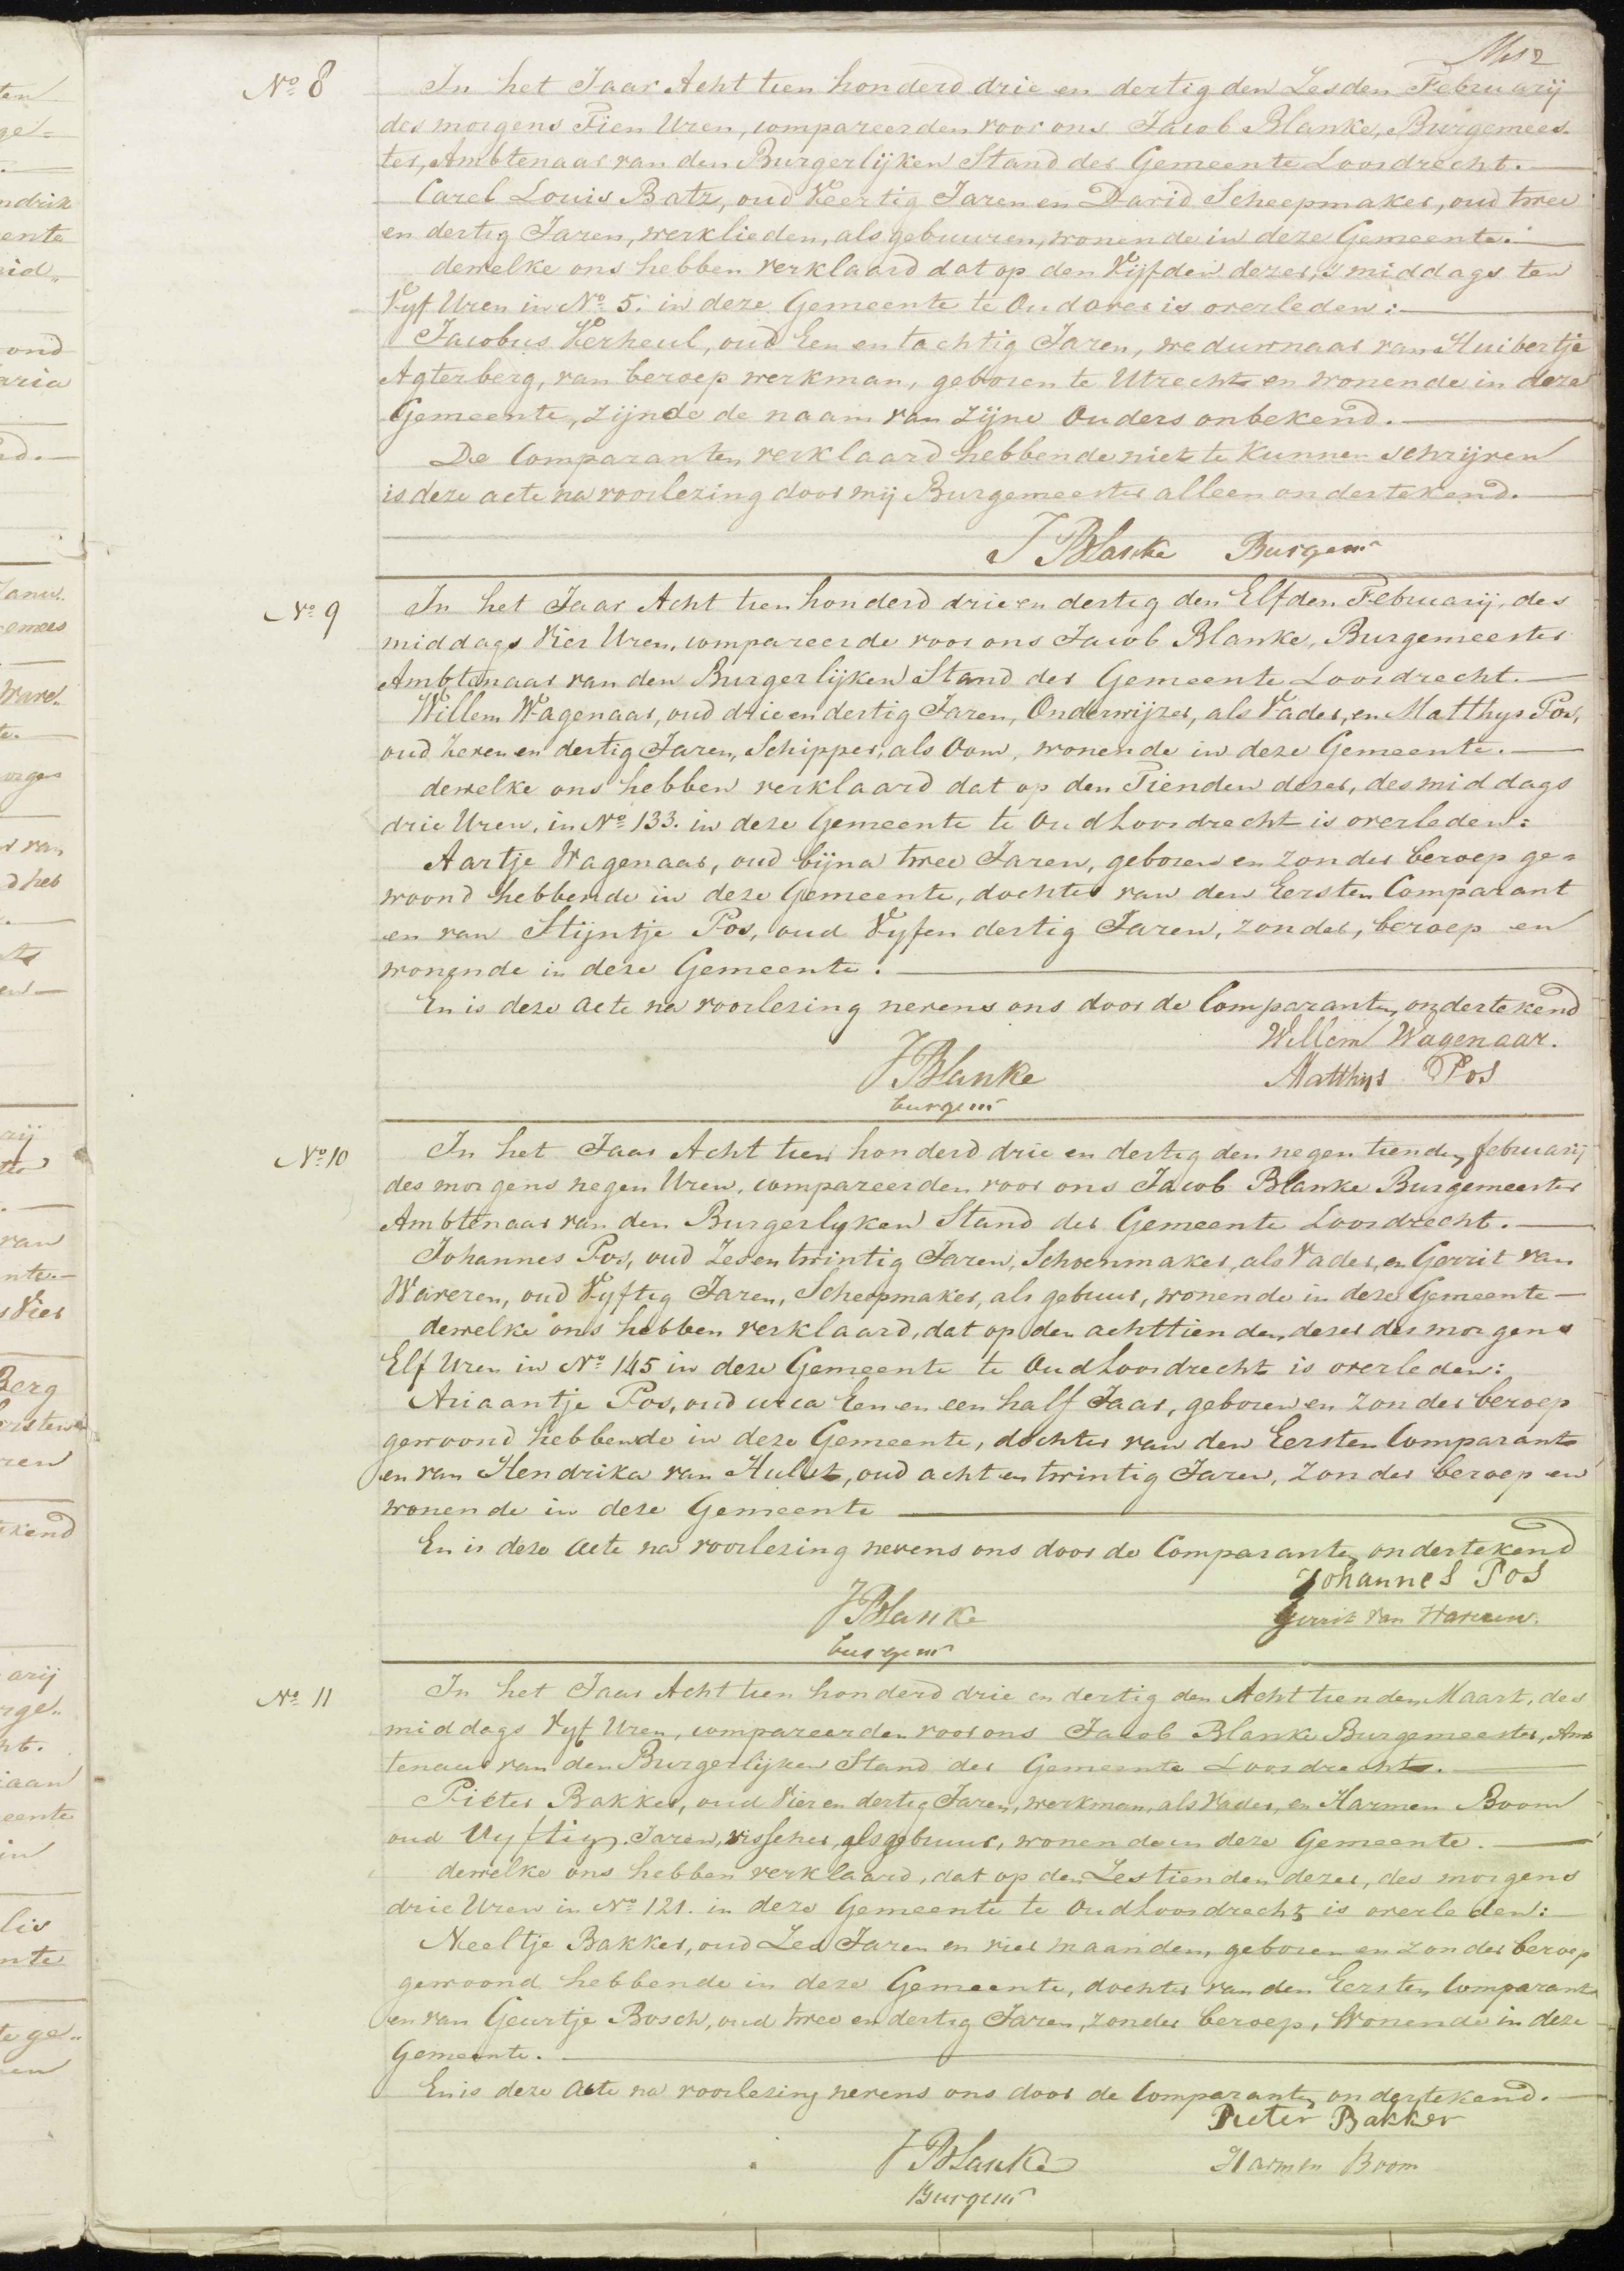 No 8
In het Jaar Acht tien honderd drie en dertig den Zesden Februarij
des morgens Tien Uren, compareerden voor ons Jacob Blanke, Burgemees-
ter, Ambtenaar van den Burgerlijken Stand der Gemeente Loosdrecht.
Carel Louis Batz, oud Veertig Jaren en David Scheepmaker, oud twee
en dertig Jaren, werklieden, als gebuuren, wonende in deze Gemeente.
dewelke ons hebben verklaard dat op den Vijfden dezer, s middags ten
Vyf Uren in No 5. in deze Gemeente te Oudover is overleden:
Jacobus Verheul, oud Een en tachtig Jaren, weduwnaar van Huibertje
Agterberg, van beroep werkman, geboren te Utrecht en wonende in deze
Gemeente, zijnde de naam van zijne Ouders onbekend.
De Comparanten verklaard hebbende niet te kunnen schrijven
is deze acte na voorlezing door mij Burgemeester alleen ondertekend.
J Blanke Burgemr
No 9
In het Jaar Acht tien honderd drie en dertig den Elfden Februarij, des
middags Vier Uren, compareerde voor ons Jacob Blanke, Burgemeester
Ambtenaar van den Burgerlijken Stand der Gemeente Loosdrecht.
Willem Wagenaar, oud drie en dertig Jaren, Onderwijzer, als Vader, en Matthys Pos,
oud zeven en dertig Jaren, Schipper, als Oom, wonende in deze Gemeente.
dewelke ons hebben verklaard dat op den Tienden dezer, des middags
drie Uren, in No 133. in deze Gemeente te Oud Loosdrecht is overleden:
Aartje Wagenaar, oud bijna twee Jaren, geboren en zonder beroep ge=
woond hebbende in deze Gemeente, dochter van den Eersten Comparant
en van Stijntje Pos, oud Vyf en dertig Jaren, zonder, beroep en
wonende in deze Gemeente.
En is deze acte na voorlezing nevens ons door de Comparanten ondertekend
Willem Wagenaar.
J Blanke Matthijs Pos
burgemr
No 10
In het Jaar Acht tien honderd drie en dertig den negen tienden februarij
des morgens negen Uren, compareerden voor ons Jacob Blanke Burgemeester
Ambtenaar van den Burgerlyken Stand der Gemeente Loosdrecht.
Johannes Pos, oud Zes en twintig Jaren, Schoenmaker, als Vader, en Gerrit van
Waveren, oud Vyftig Jaren, Scheepmaker, als gebuur, wonende in deze Gemeente
dewelke ons hebben verklaard, dat op den achttienden dezer des morgens
Elf Uren in No 145 in deze Gemeente te Oud Loosdrecht is overleden:
Ariaantje Pos, oud circa Een en een half Jaar, geboren en zonder beroep
gewoond hebbende in deze Gemeente, dochter van den Eersten Comparant
en van Hendrika van Hulst, oud acht en twintig Jaren, zonder beroep en
wonende in deze Gemeente
En is deze acte na voorlezing nevens ons door de Comparanten ondertekend
Johannes Pos
J Blanke Gerrit van Waveren.
burgemr
No 11
In het Jaar Acht tien honderd drie en dertig den Acht tienden Maart, des
middags Vyf Uren, compareerden voor ons Jacob Blanke Burgemeester, Amb
tenaar van den Burgerlijken Stand der Gemeente Loosdrecht.
Pieter Bakker, oud Vier en dertig Jaren, werkman, als Vader, en Harmen Boom
oud Vyftig Jaren, visscher, als gebuur, wonende in deze Gemeente.
dewelke ons hebben verklaard, dat op den Zestienden dezer, des morgens
drie Uren in No 121. in deze Gemeente te Oud Loosdrecht is overleden:
Neeltje Bakker, oud Zes Jaren en vier maanden, geboren en zonder beroep
gewoond hebbende in deze Gemeente, dochter van den Eersten Comparant
en van Geurtje Bosch, oud twee en dertig Jaren, zonder beroep, Wonende in deze
Gemeente.
En is deze acte na voorlezing nevens ons door de Comparanten ondertekend.
Pieter Bakker
J Blanke Harmen Boom
Burgemr